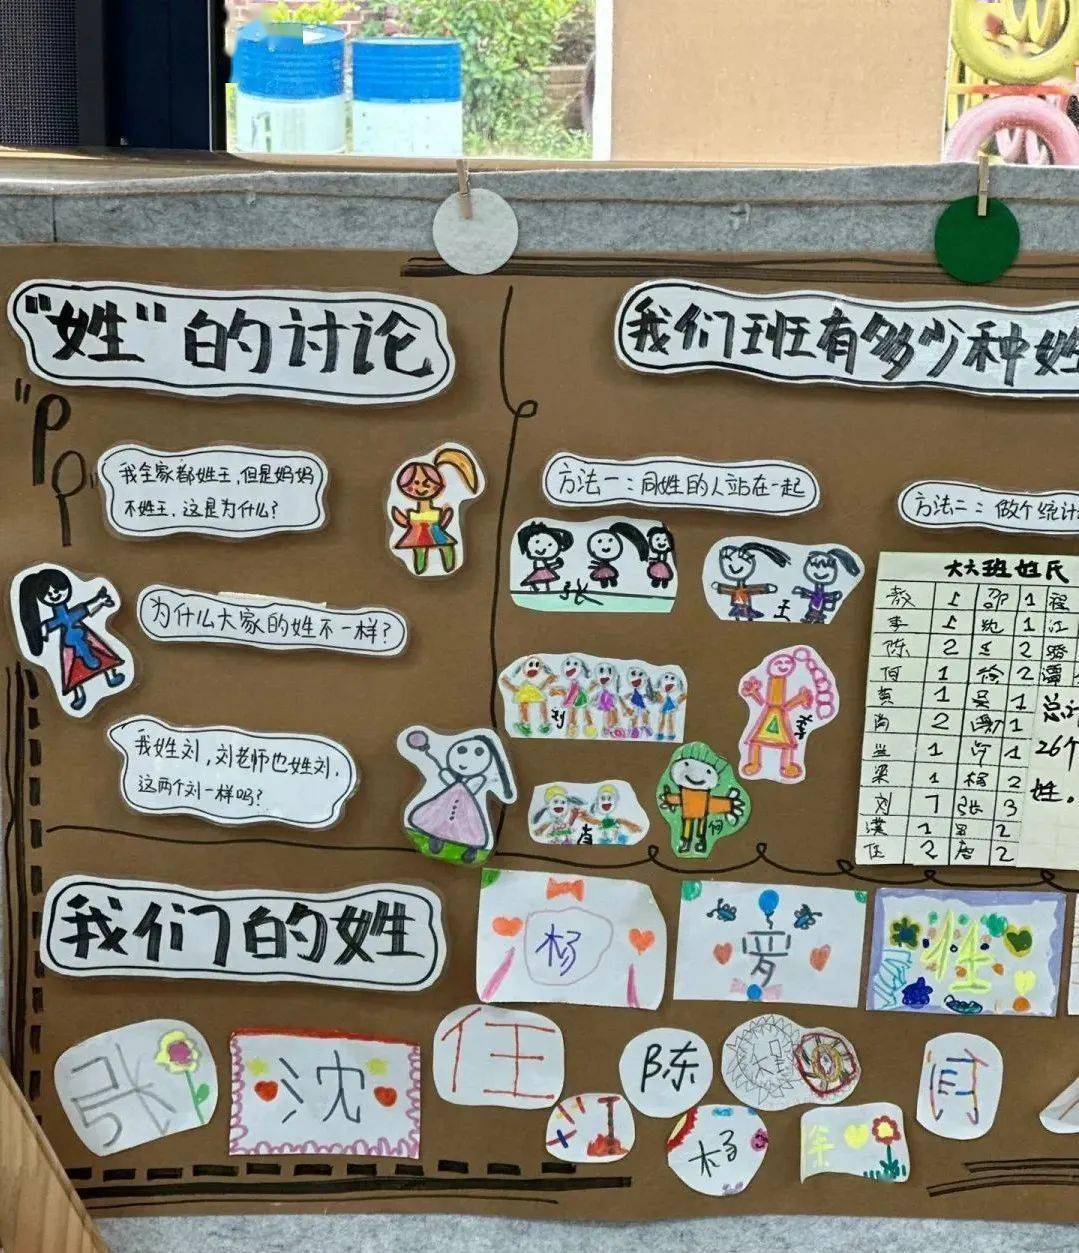 "姓"的讨论
"P
P"
我全家都姓王,但是妈妈
不姓王,这是为什么?
为什么大家的姓不一样?
我姓刘,刘老师也姓刘,
这两个刘一样吗?
我们班有多少种姓
方法一:同姓的人站在一起
张
王
刘
李
何
方法二:做个统计
大六班姓氏
1 邵 1 程
李 1 沈 1 江
陈 2 王 2
1 徐 2 潭
黄 1 吴 1
尚 2 谢 1
兰 1 许 1
梁 1 杨 2
刘 7 张 3
1 2
任 2 唐 2
总计
26个
姓。
我们的姓
杨
罗
张
沈
任
江
陈
杨